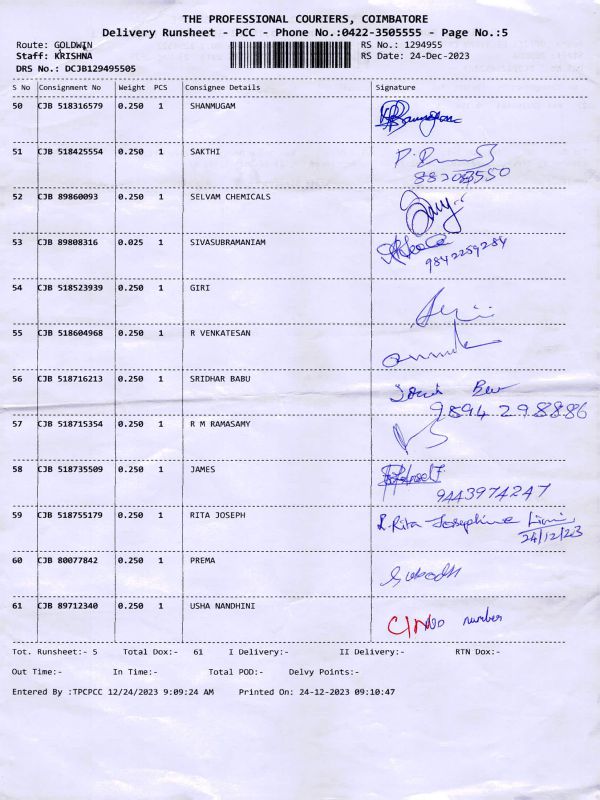 THE PROFESSIONAL COURIERS, COIMBATORE
Delivery Runsheet - PCC - Phone No.:0422-3505555 - Page No.:5
Route: GOLDWIN RS No.: 1294955
Staff: KRISHNA RS Date: 24-Dec-2023
DRS No.: DCJB129495505
S No Consignment No Weight PCS Consignee Details Signature
50 CJB 518316579 0.250 1 SHANMUGAM
51 CJB 518425554 0.250 1 SAKTHI
52 CJB 89860093 0.250 1 SELVAM CHEMICALS
53 CJB 89808316 0.025 1 SIVASUBRAMANIAM
9842259284
54 CJB 518523939 0.250 1 GIRI
55 CJB 518604968 0.250 1 R VENKATESAN
56 CJB 518716213 0.250 1 SRIDHAR BABU
9894298886
57 CJB 518715354 0.250 1 R M RAMASAMY
58 CJB 518735509 0.250 1 JAMES
9443974247
59 CJB 518755179 0.250 1 RITA JOSEPH R. Rita Josephine
24/12/23
60 CJB 80077842 0.250 1 PREMA
61 CJB 89712340 0.250 1 USHA NANDHINI
C/N No number
Tot. Runsheet:- 5 Total Dox:- 61 I Delivery:- II Delivery:- RTN Dox:-
Out Time:- In Time:- Total POD:- Delvy Points:-
Entered By :TPCPCC 12/24/2023 9:09:24 AM Printed On: 24-12-2023 09:10:47